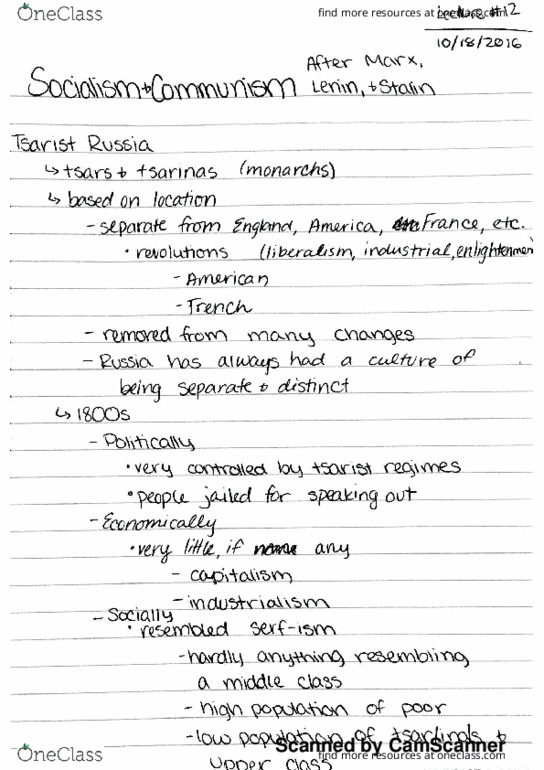 OneClass
find more resources at oneclass.com
Lecture #12
10/18/2016
Socialism + Communism After Marx,
Lenin, + Stalin
Tsarist Russia
↳ tsars + tsarinas (monarchs)
↳ based on location
- separate from England, America, France, etc.
• revolutions (liberalism, industrial, enlightenmen
- American
- French
- removed from many changes
- Russia has always had a culture of
being separate + distinct
↳ 1800s
- Politically
• very controlled by tsarist regimes
• people jailed for speaking out
- Economically
• very little, if any
- capitalism
- industrialism
- Socially
• resembled serf-ism
- hardly anything resembling
a middle class
- high population of poor
- low population of +
upper class
Scanned by CamScanner
OneClass
find more resources at oneclass.com